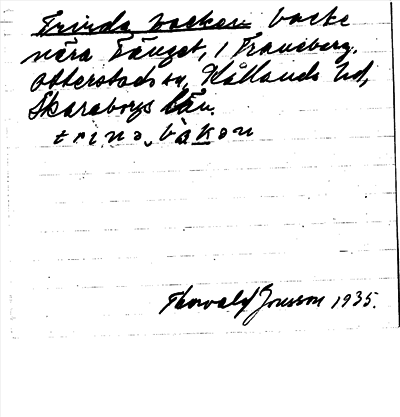 Trinda backen backe
nära Länget, 1 Traneberg,
Otterstads sn, Kållands hd,
Skaraborgs län.
trinə bakən
Thorvald Jonsson 1935.